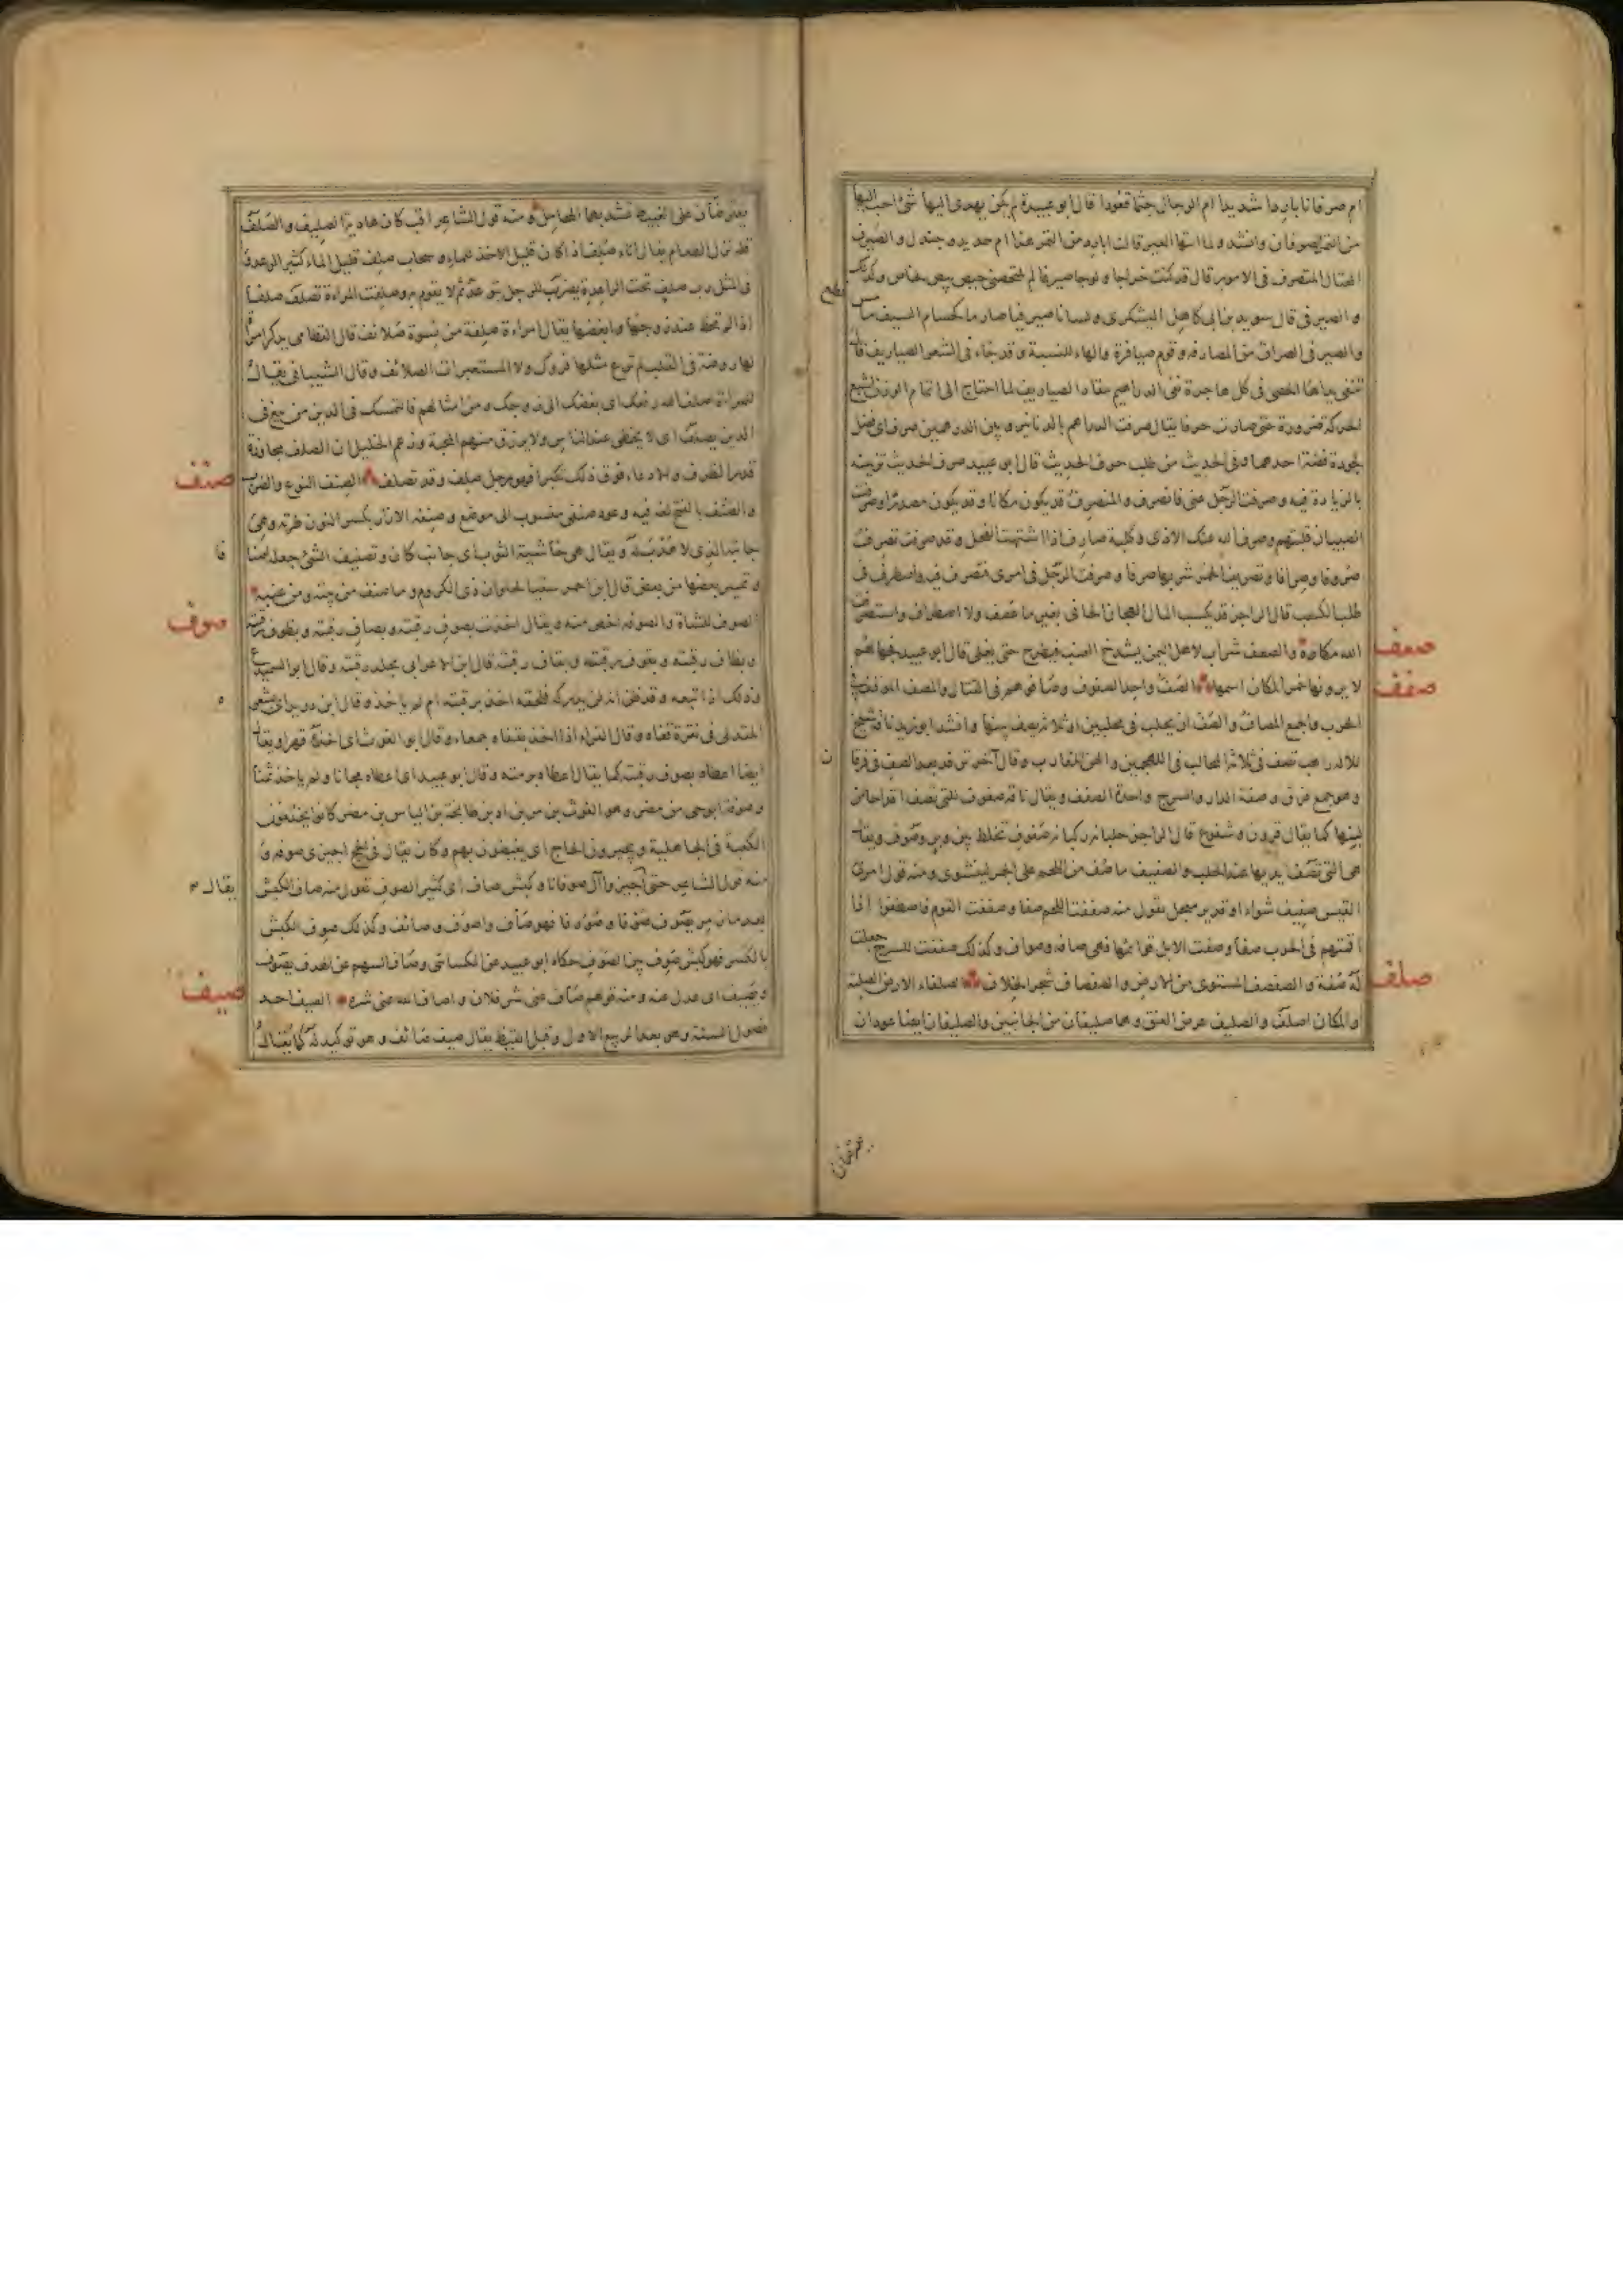 ام صرفانا باردا شديدا ام الرجال جثما قعودا قال ابو عبيدة لم يكن يهدى اليها شئ احب اليها
من التمر الصرفان وانشد ولما اتتها العير قالت ابارد من التمر هذا ام حديد وجندل والصيرف
المحتال المتصرف فى الامور قال قد كنت خراجا ولوجا صيرفا لم تلتحصنى حيص بيص لحاص وكذلك
قطع
و الصيرفى قال سويد بن ابى كاهل اليشكرى ولسانا صيرفيا صارما كحسام السيف ما مس
والصيرفى الصراف من المصارفه وقوم صيارفة والهاء للنسبة وقد جاء فى الشعر الصياريف قال
تنفى يداها الحصى فى كل هاجرة نفى الدراهيم تنقاد الصياريف لما احتاج الى اتمام الوزن اشبع
الحركة ضرورة حتى صارت حرفا يقال صرفت الدراهم بالدنانير وبين الدرهمين صرف اى فضل
لجودة فضة احدهما وفى الحديث من طلب صرف الحديث قال ابو عبيد صرف الحديث تزيينه
بالزيادة فيه وصرفت الرجل عنى فانصرف والمنصرف قد يكون مكانا وقد يكون مصدرا وصرفت
الصبيان قلبتهم وصرف الله عنك الاذى وكلبة صارف اذا اشتهت الفحل وقد صرفت تصرف
صروفا وصرافا وتصريف الخمر شربها صرفا وصرفت الرجل فى امرى فتصرف فيه واصطرف فى
طلب الكسب قال الراجز قد يكسب المال الهجان الجافى بغير ما عصف ولا اصطراف واستصرفت
صعف
الله مكاره والصعف شراب لاهل اليمن يشدخ العنب فيطرح حتى يغلى قال ابو عبيد فجهالهم
صفف
لا يرونها خمرا لمكان اسمها الصف واحد الصفوف وصافوهم فى القتال والمصف الموقف فى
الحرب والجمع المصاف والصف ان يحلب فى محلبين او ثلاثة يصف بينها وانشد ابو زيد ناقة شيخ
ن
للاله راهب تصف فى ثلاثة المحالب فى اللهجمين والهن المقارب وقال آخر ترفد بعد الصف فى فرقان
وهو جمع فرق وصفة الدار والسرج واحدة الصفف ويقال ناقة صفوف للتى تصف اقداحا من
لبنها كما يقال قرون وشفوع قال الراجز حلبانة ركبانة صفوف تخلط بين وبر وصوف ويقال
هى التى تصف يديها عند الحلب والصفيف ما صف من اللحم على الجمر لينشوى ومنه قول امرئ
القيس صفيف شواء او قدير معجل يقول منه صففت اللحم صفا وصففت القوم فاصطفوا اذا
اقمتهم فى الحرب صفا وصفت الابل قوائمها فهى صافة وصواف وكذلك صففت للسرج جعلت
صلف
له صفة والصفصف المستوى من الارض والصفصاف شجر الخلاف الصلفاء الارض الصلبة
والمكان اصلف والصليف عرض العنق وهما صليفان من الجانبين والصليفان ايضا عودان
يعترضان
يعترضان على الغبيط تشد بهما المحامل ومنه قول الشاعر اقب كان هاديه الصليف والصلف
قلة نزل الطعام يقال اناء صلف اذا كان قليل الاخذ للماء وسحاب صلف قليل الماء كثير الرعد وفى
المثل رب صلف تحت الراعدة يضرب للرجل يتوعد ثم لا يقوم به وصلفت المراءة تصلف صلفا
اذا لم تحظ عند زوجها وابغضها يقال امراءة صلفة من نسوة صلائف قال القطامى يذكر امراة
لها روضة فى القلب لم ترع مثلها فروك ولا المستعبرات الصلائف وقال الشيبانى يقال
للمراة اصلف الله رفغك اى بغضك الى زوجك ومن امثالهم فى التمسك فى الدين من يبغ فى
الدين يصلف اى لا يحظى عند الناس ولا يرزق منهم المحبة وزعم الخليل ان الصلف مجاوزة
صنف
قدر الظرف والادعاء فوق ذلك تكبرا فهو رجل صلف وقد تصلف الصنف النوع والضرب
والصنف بالفتح لغة فيه وعود صنفى منسوب الى موضع وصنفة الازار بكسر النون طرته وهى
فا
جانبه الذى لا هدب له ويقال هى حاشية الثوب اى جانب كان وتصنيف الشئ جعله اصنافا
وتمييز بعضها من بعض قال ابن احمر سقيا لحلوان ذى الكروم وما صنف من تينه ومن عنبه
صوف
الصوف للشاة والصوفة اخص منه ويقال اخذت بصوف رقبته وبصاف رقبته وبظوف رقبته
وبظاف رقبته وبقوف رقبته وبقاف رقبته قال ابن الاعرابى بجلد رقبته وقال ابو السميدع
ه
وذلك اذا تبعه وقد ظن ان لن يدركه فلحقه اخذ برقبته ام لم ياخذ وقال ابن دريد اى بشعره
المتدلى فى نقرة قفاه وقال الفراء اذا اخذه بقفاه جمعاء وقال ابو الغوث اى اخذه قهرا ويقال
ايضا اعطاه بصوف رقبته كما يقال اعطاه برمته وقال ابو عبيد اى اعطاه مجانا ولم ياخذ ثمنا
وصوفة ابو حى من مضر وهو الغوث بن مر بن اد بن طابخة بن الياس بن مضر كانوا يخدمون
الكعبة فى الجاهلية ويجيزون الحاج اى يفيضون بهم وكان يقال فى الحج اجيزى صوفه و
يقال
منه قول الشاعر حتى يقال اجيزوا آل صوفانا وكبش صاف اى كثير الصوف تقول منه صاف الكبش
بعد ما زمر يصوف صوفا وصووفا فهو صاف واصوف وصائف وكذلك صوف الكبش
بالكسر فهو كبش صوف بين الصوف حكاه ابو عبيد عن الكسائى وصاف السهم عن الهدف يصوف
صيف
ويصيف اى عدل عنه ومنه قولهم صاف عنى شر فلان واصاف الله عنى شره الصيف احد
فصول السنة وهو بعد الربيع الاول وقبل القيظ يقال صيف صائف وهو توكيد له كما يقال